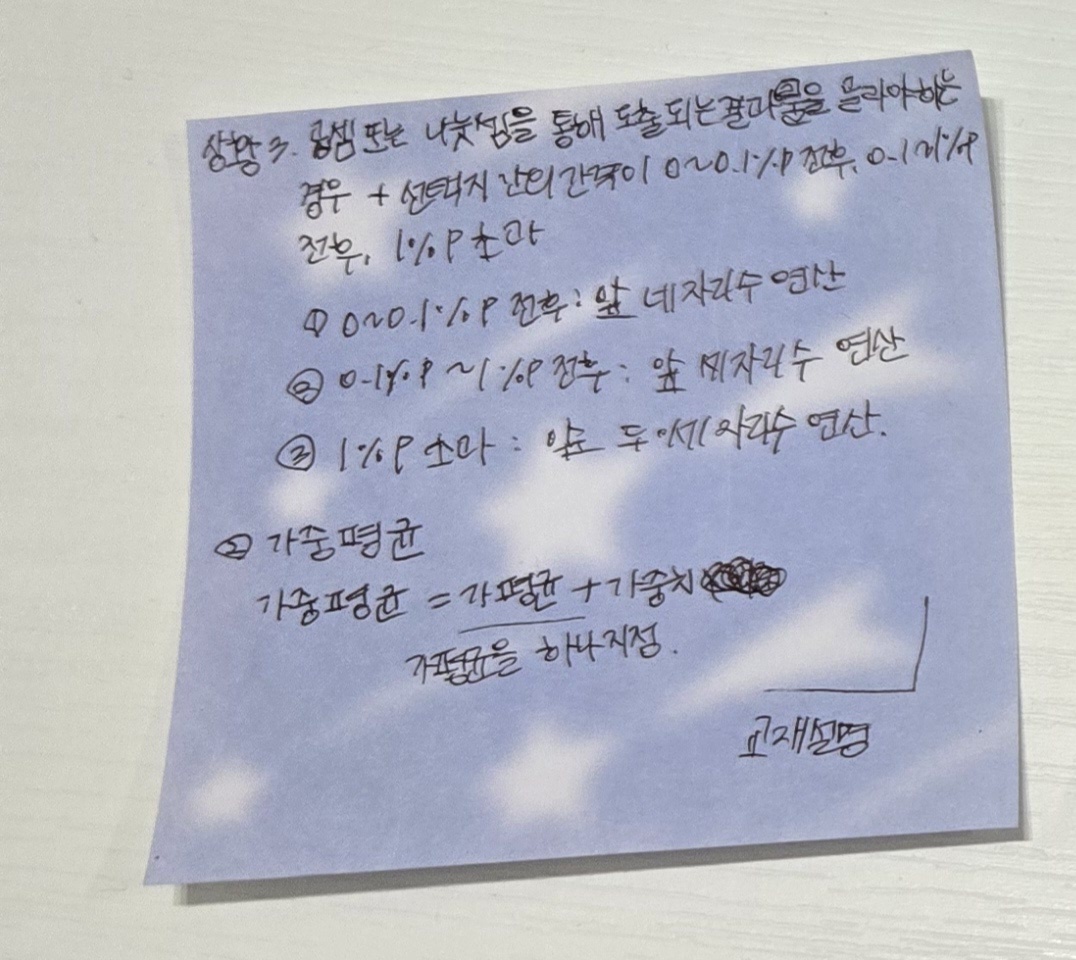 상황 3. 곱셈 또는 나눗셈을 통해 도출되는 결과물을 골라야하는
경우 + 선택지 간의 간격이 0~0.1%P 전후, 0.1~1%P
전후, 1%P 초과
① 0~0.1%P 전후 : 앞 네자리수 연산
② 0.1%P ~1%P 전후 : 앞 세자리수 연산
③ 1%P 초과 : 앞 두어세자리수 연산.
② 가중평균
가중평균 = 가평균 + 가중치
가평균을 하나지정.
교재설명